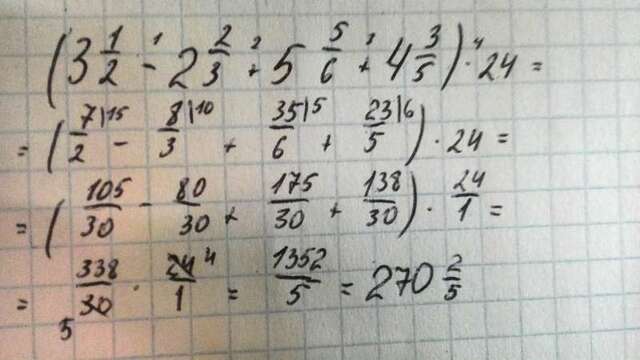 (3 1/2 -¹ 2 2/3 +² 5 5/6 +³ 4 3/5) ·⁴ 24 =
= (7/2 |15 - 8/3 |10 + 35/6 |5 + 23/5 |6) · 24 =
= (105/30 - 80/30 + 175/30 + 138/30) · 24/1 =
= 338/30 5 · 24/1 4 = 1352/5 = 270 2/5